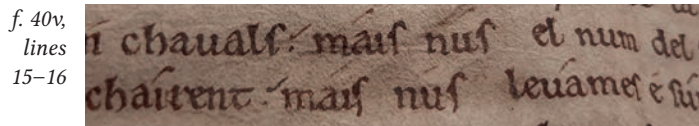 f. 40v,
lines
15–16
i chauals: mais nus el num del
chairent: mais nus leuames e sur